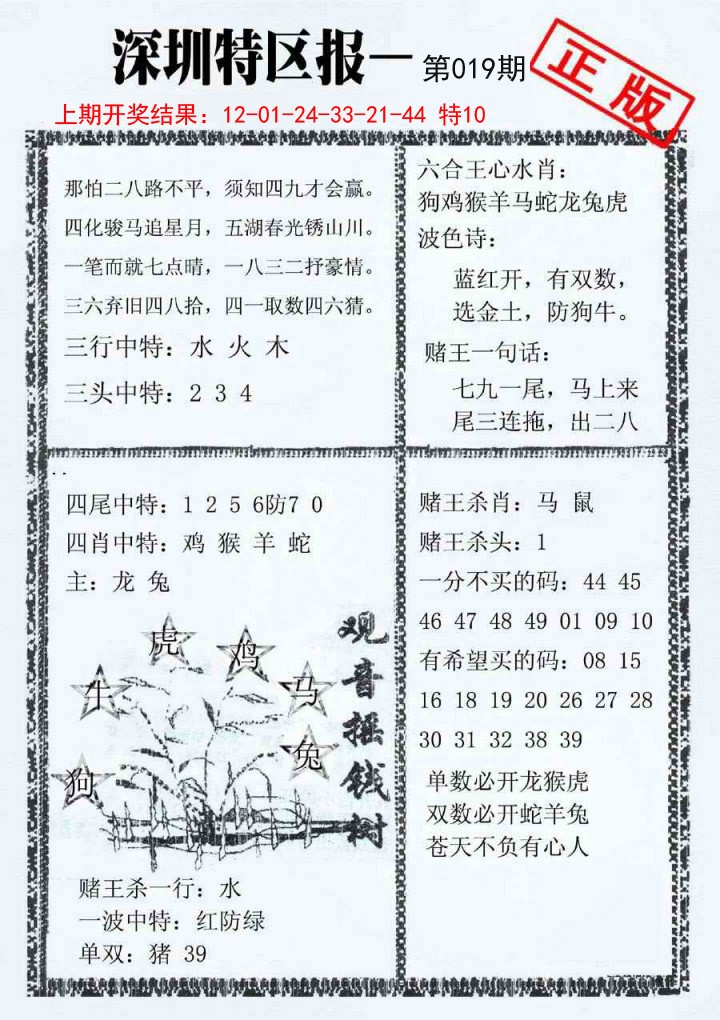 深圳特区报一 第019期
正版
上期开奖结果：12-01-24-33-21-44 特10
那怕二八路不平，须知四九才会赢。
四化骏马追星月，五湖春光锈山川。
一笔而就七点晴，一八三二抒豪情。
三六弃旧四八拾，四一取数四六猜。
三行中特：水 火 木
三头中特：2 3 4
六合王心水肖：
狗鸡猴羊马蛇龙兔虎
波色诗：
蓝红开，有双数，
选金土，防狗牛。
赌王一句话：
七九一尾，马上来
尾三连拖，出二八
..
四尾中特：1 2 5 6防7 0
四肖中特：鸡 猴 羊 蛇
主：龙 兔
虎
鸡
牛
马
兔
狗
观音摇钱树
赌王杀一行：水
一波中特：红防绿
单双：猪 39
赌王杀肖：马 鼠
赌王杀头：1
一分不买的码：44 45
46 47 48 49 01 09 10
有希望买的码：08 15
16 18 19 20 26 27 28
30 31 32 38 39
单数必开龙猴虎
双数必开蛇羊兔
苍天不负有心人